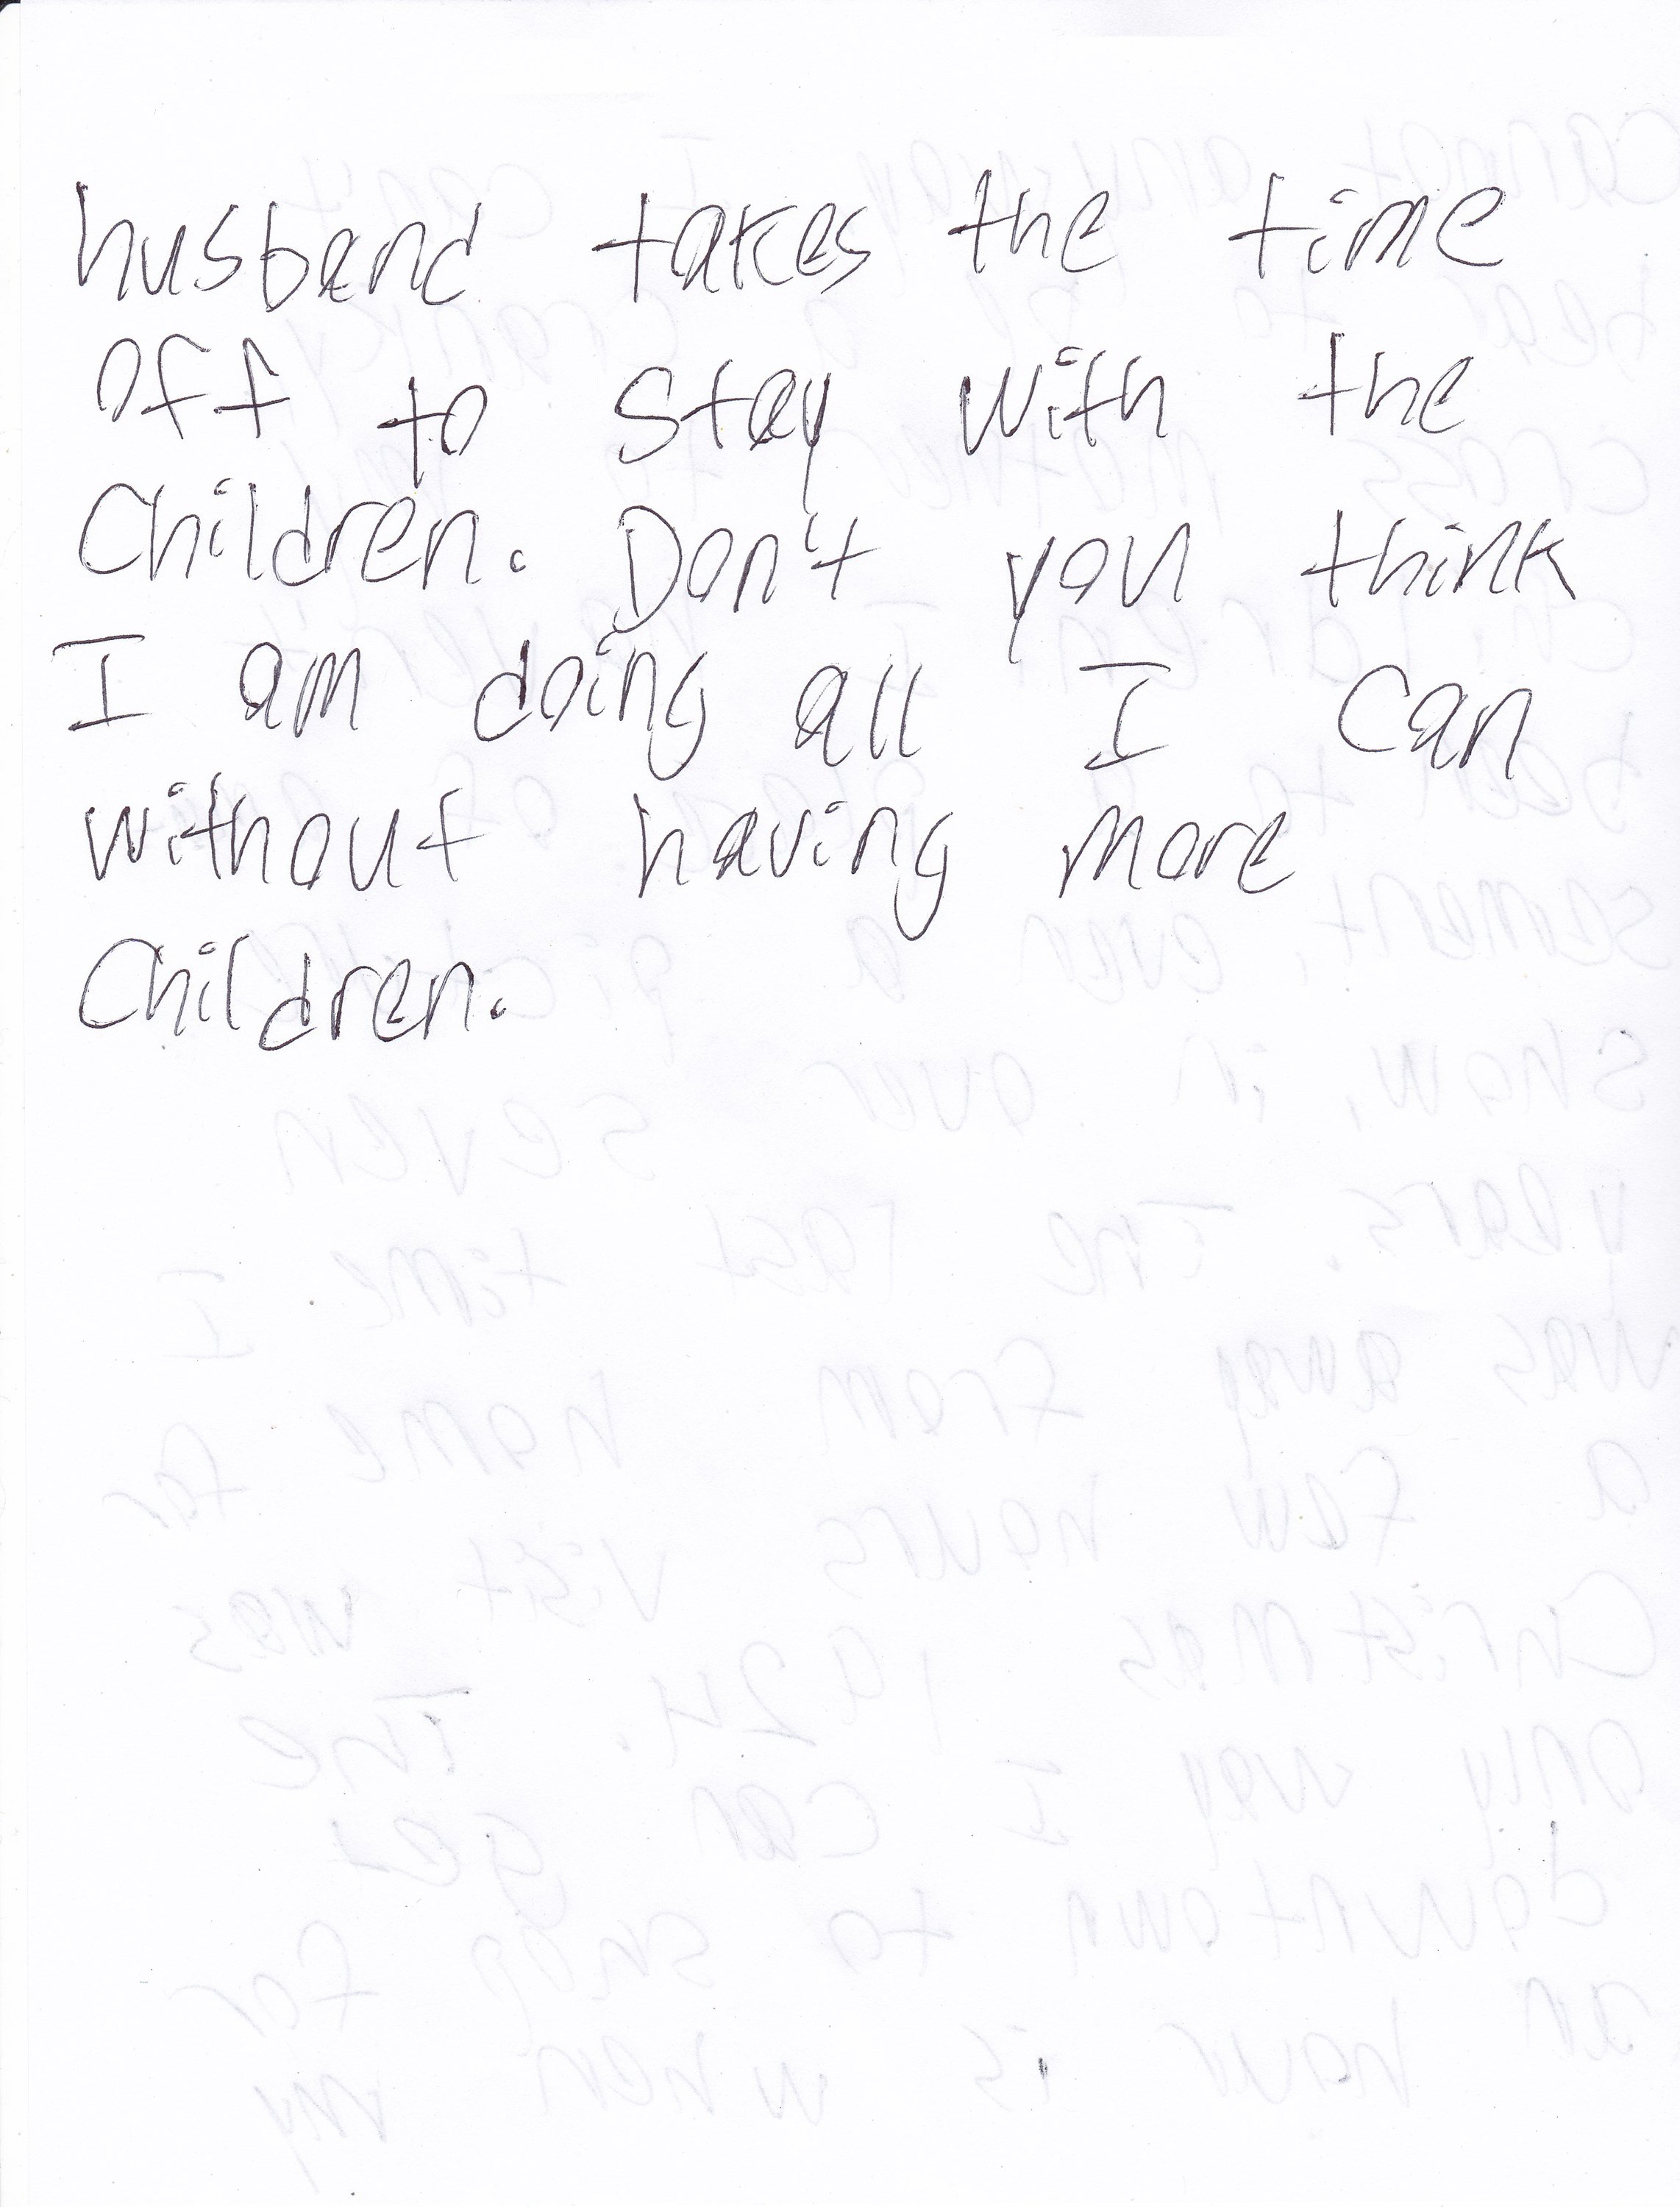 husband takes the time
off to stay with the
Children. Don't you think
I am doing all I can
without having more
Children.